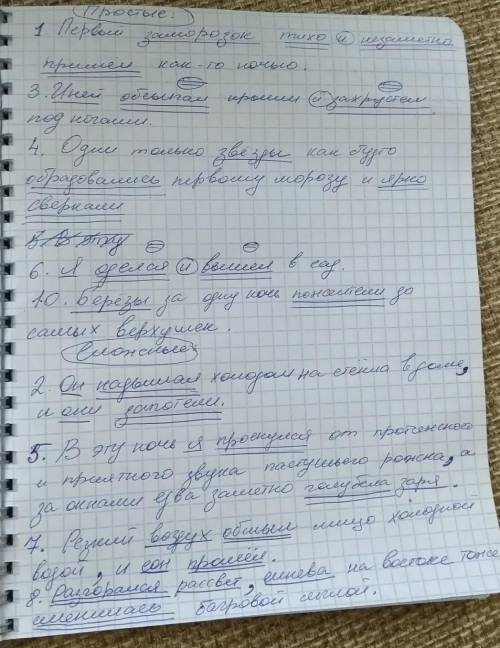 Простые:
1. Первый заморозок тихо и незаметно
пришёл как-то ночью.
3. Иней обсыпал крыши и захрустел
под ногами.
4. Одни только звёзды как будто
обрадовались первому морозу и ярко
сверкали
5. В эту
6. Я оделся и вышел в сад.
10. Берёзы за одну ночь пожелтели до
самых верхушек.
Сложные
2. Он надышал холодом на стёкла в доме,
и они запотели.
5. В эту ночь я проснулся от протяжного
и приятного звука пастушьего рожка, а
за окнами едва заметно голубела заря.
7. Резкий воздух обмыл лицо холодной
водой, и сон прошёл.
8. Разгорался рассвет, синева на востоке тоже
сменилась багровой мглой.